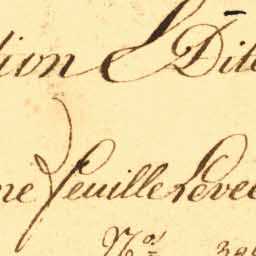 tion & Dite
ne feuille Levée
Nos